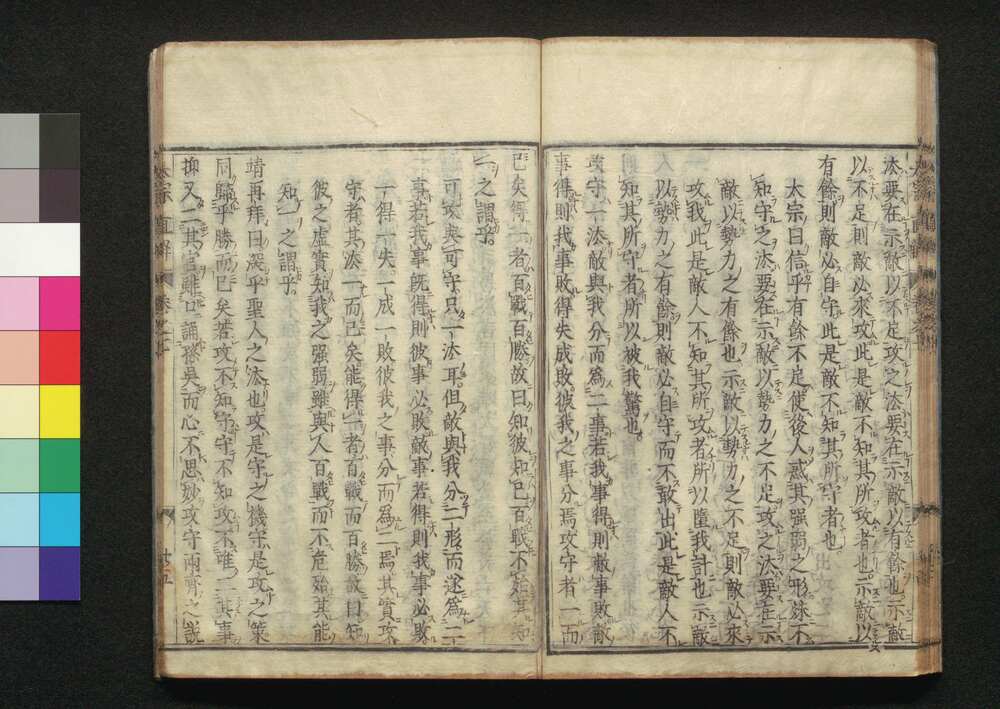 法要在示敵以不足攻之法要在示敵以有餘也示敵
以不足則敵必來攻此是敵不知其所攻者也示敵以
有餘則敵必自守此是敵不知其所守者也
太宗曰信乎有餘不足使後人惑其强弱之形殊不
知守之法要在示敵以勢力之不足攻之法要在示
敵以勢力之有餘也示敵以勢力之不足則敵必來
攻我此是敵人不知其所攻者所以墮我計也示敵
以勢力之有餘則敵必自守而不敢出此是敵人不
知其所守者所以被我驚也
攻守一法敵與我分而爲二事若我事得則敵事敗敵
事得則我事敗得失成敗彼我之事分焉攻守者一而
已矣得一者百戰百勝故曰知彼知己百戰不殆其知
一之謂乎
可攻與可守只一法耳但敵與我分二形而遂爲二
事若我事既得則彼事必敗敵事若得則我事必敗
一得一失一成一敗彼我之事分而爲二焉其實攻
守者其法一而已矣能得一者百戰而百勝故曰知
彼之虚實知我之强弱雖與人百戰而不危殆其能
知一之謂乎
靖再拜曰深乎聖人之法也攻是守之機守是攻之策
同歸乎勝而已矣若攻不知守守不知攻不唯二其事
抑又二其官雖口誦孫吳而心不思妙攻守兩齊之説
太宗直解
廿五